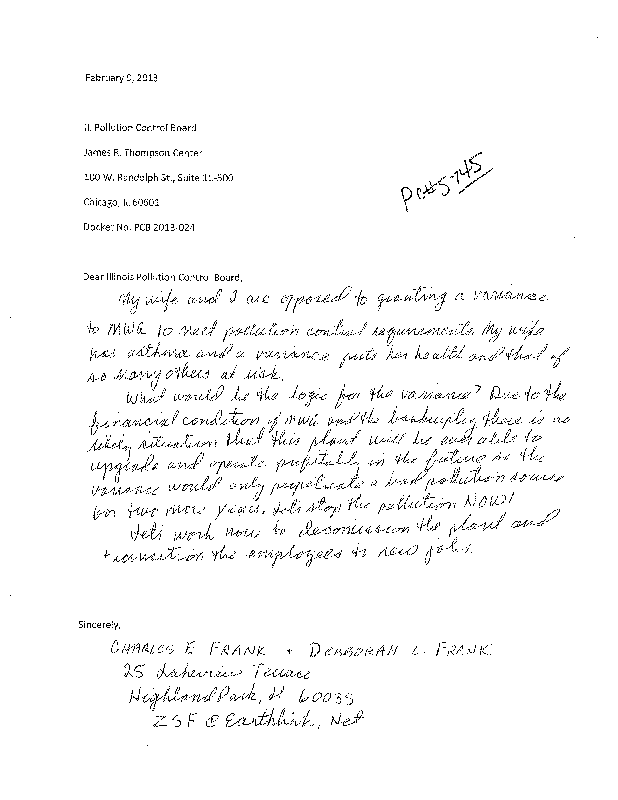 February 9, 2013
IL Pollution Control Board
James R. Thompson Center
100 W. Randolph St., Suite 11-500
Chicago, IL 60601
PC#5745
Docket No. PCB 2013-024
Dear Illinois Pollution Control Board,
My wife and I are opposed to granting a variance
to MWG to meet pollution control requirements. My wife
has asthma and a variance puts her health and that of
so many others at risk.
What would be the logic for the variance? Due to the
financial condition of MWG and the bankruptcy there is no
likely situation that this plant will be ever able to
upgrade and operate profitably in the future so the
variance would only perpetuate a bad pollution source
for two more years. Let's stop the pollution NOW!
Let's work now to decommission the plant and
transition the employees to new jobs.
Sincerely,
CHARLES E FRANK + DEBBORAH L. FRANK
25 Lakeview Terrace
Highland Park, Il 60035
ZSF @ Earthlink, Net